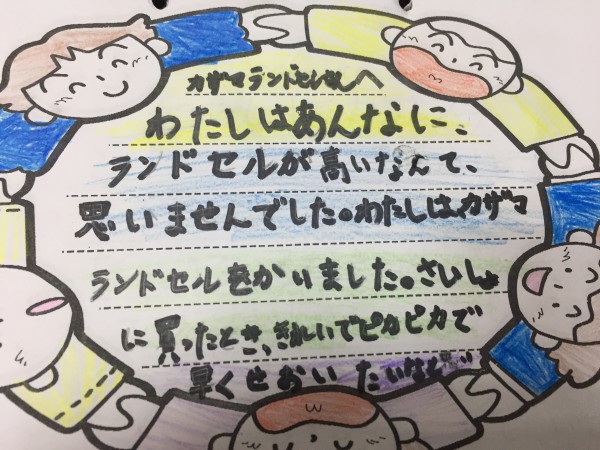 カザマランドセルさんへ
わたしはあんなに、
ランドセルが高いなんて、
思いませんでした。わたしは、カザマ
ランドセルをかいました。さいしょ
に買ったとき、きれいでピカピカで
早くせおいたいなと